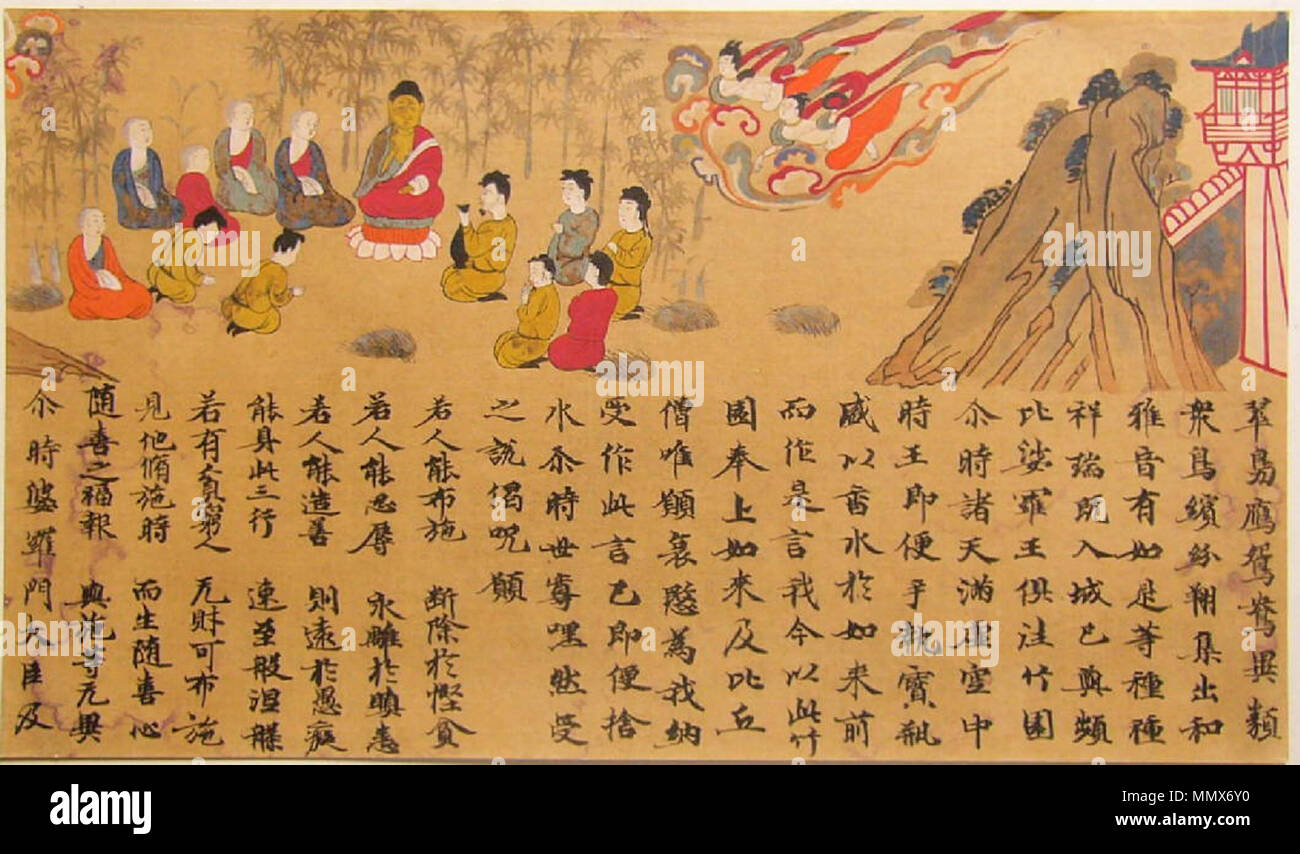 翠鳧鴈鴛鴦異類
衆鳥繽紛翔集出和
雅音有如是等種種
祥瑞既入城已與頻
比娑羅王俱往竹園
尒時諸天滿虛空中
時王即便手執寶瓶
盛以香水於如來前
而作是言我今以此竹
園奉上如來及比丘
僧唯願哀愍為我納
受作此言已即便捨
水尒時世尊嘿然受
之說偈呪願
若人能布施 斷除於慳貪
若人能忍辱 永離於瞋恚
若人能造善 則遠於愚癡
能具此三行 速至般涅槃
若有貧窮人 无財可布施
見他脩施時 而生随喜心
随喜之福報 與施等无異
尒時婆羅門大臣及
alamy
Image ID: MMX6Y0
www.alamy.com